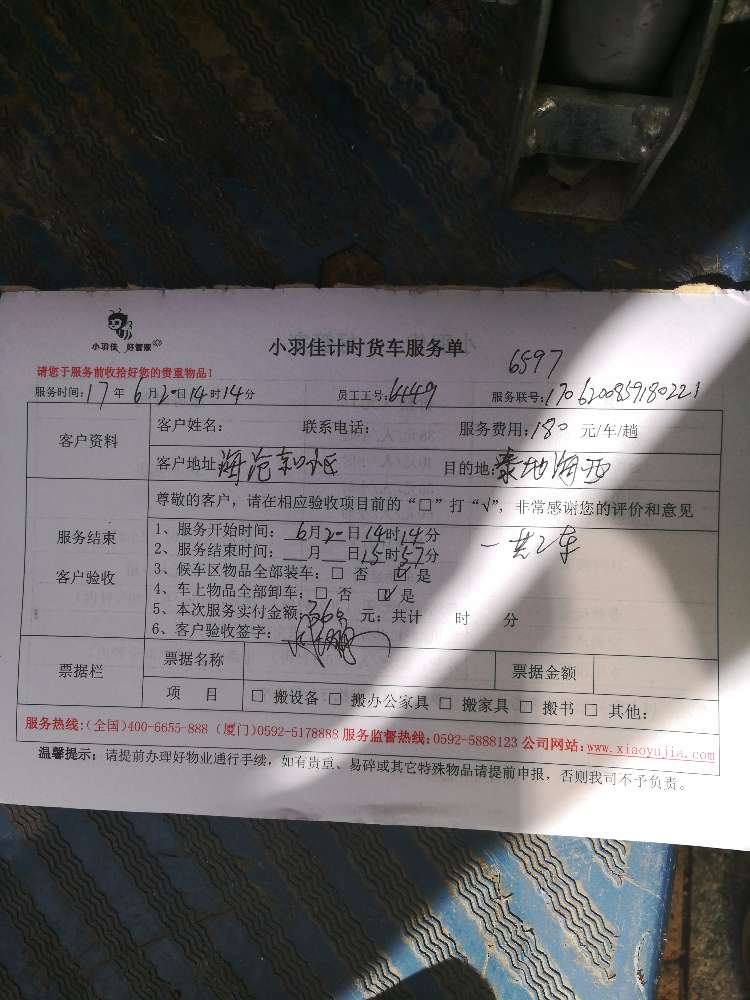 小羽佳 好管家
小羽佳计时货车服务单
6597
请您于服务前收拾好您的贵重物品!
服务时间:17年6月20日14时14分 员工工号:6449 服务联号:1706200859180221
客户资料
客户姓名: 联系电话: 服务费用:180元/车/趟
客户地址 海沧 小区 目的地:泰地海西
尊敬的客户,请在相应验收项目前的“□”打“√”,非常感谢您的评价和意见
服务结束
客户验收
1、服务开始时间:6月20日14时14分
2、服务结束时间: 月 日15时57分
一共2车
3、候车区物品全部装车:□ 否 ☑ 是
4、车上物品全部卸车:□ 否 ☑ 是
5、本次服务实付金额:360元;共计 时 分
6、客户验收签字:
票据栏
票据名称 票据金额
项 目 □ 搬设备 □ 搬办公家具 □ 搬家具 □ 搬书 □ 其他:
服务热线:(全国)400-6655-888 (厦门)0592-5178888 服务监督热线:0592-5888123 公司网站:www.xiaoyujia.com
温馨提示:请提前办理好物业通行手续,如有贵重、易碎或其它特殊物品请提前申报,否则我司不予负责。